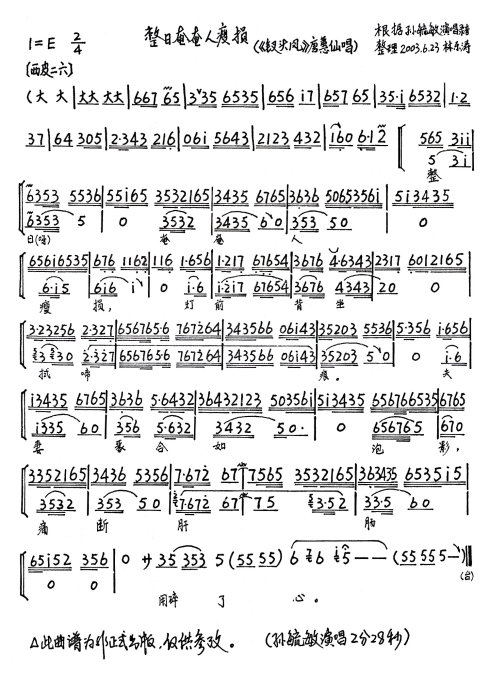 整日奄奄人瘦损
(《钗头凤》唐蕙仙唱)
根据孙毓敏演唱
整理 2003.6.23 林东涛
1=E 2/4
〔西皮二六〕
(大 大 | 大大 大大 | 667 65 | 3·35 6535 | 656 i7 | 657 65 | 35·i 6532 | 1·2
37 | 64 305 | 2·343 216 | 06i 5643 | 2123 432 | 160 6·12 | 565 3ii
5 3i
整
6353 5536 | 55i65 3532165 | 3435 6765 | 3636 5065356i | 5i3435
6353 5 | 0 3532 | 3435 60 | 353 50 | 0
日(呀) 奄 奄 人
656i6535 | 676 1162 | 116 1·656 | 1·217 67654 | 3676 4·6343 | 2317 6012165
6·i5 | 6i6 i | 0 i·6 | i2i7 67654 | 3676 4343 | 20 0
瘦 损, 灯 前 背 坐
3·23256 2·327 | 6567656 767264 | 343566 06i43 | 35203 5536 | 5·356 i·656
2·327 | 6567656 767264 | 343566 06i43 | 35203 50 | 0 i·6
拭 啼 痕。 夫
i3435 6765 | 3636 5·6432 | 36432123 50356i | 5i3435 656766535 | 6765
i335 60 | 356 5·632 | 3432 50· | 0 656765 | 670
妻 聚 合 如 泡 影,
3352165 | 3436 5356 | 7·672 67 | 7565 3532165 | 363435 6535i5
3532 | 353 50 | 7·672 67 | 75 3·52 | 33·5 60
痛 断 肝 肠
65i52 356 | 0 サ 35 353 5 (55 55) 6 76 i5 — — (55 55 5—)
0 0 (仓)
用碎了心。
△此曲谱为非正式出版,仅供参考。 (孙毓敏演唱2分28秒)